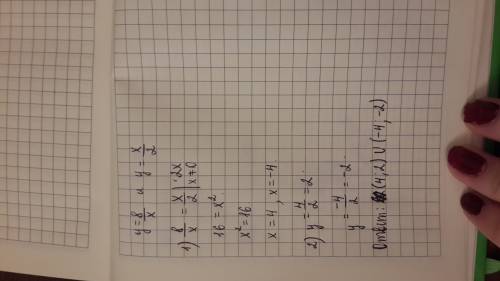 y = 8/x и y = x/2
1) 8/x = x/2 | ·2x x ≠ 0
16 = x²
x² = 16
x = 4, x = -4
2) y = 4/2 = 2
y = -4/2 = -2
Ответ: (4; 2) U (-4; -2)